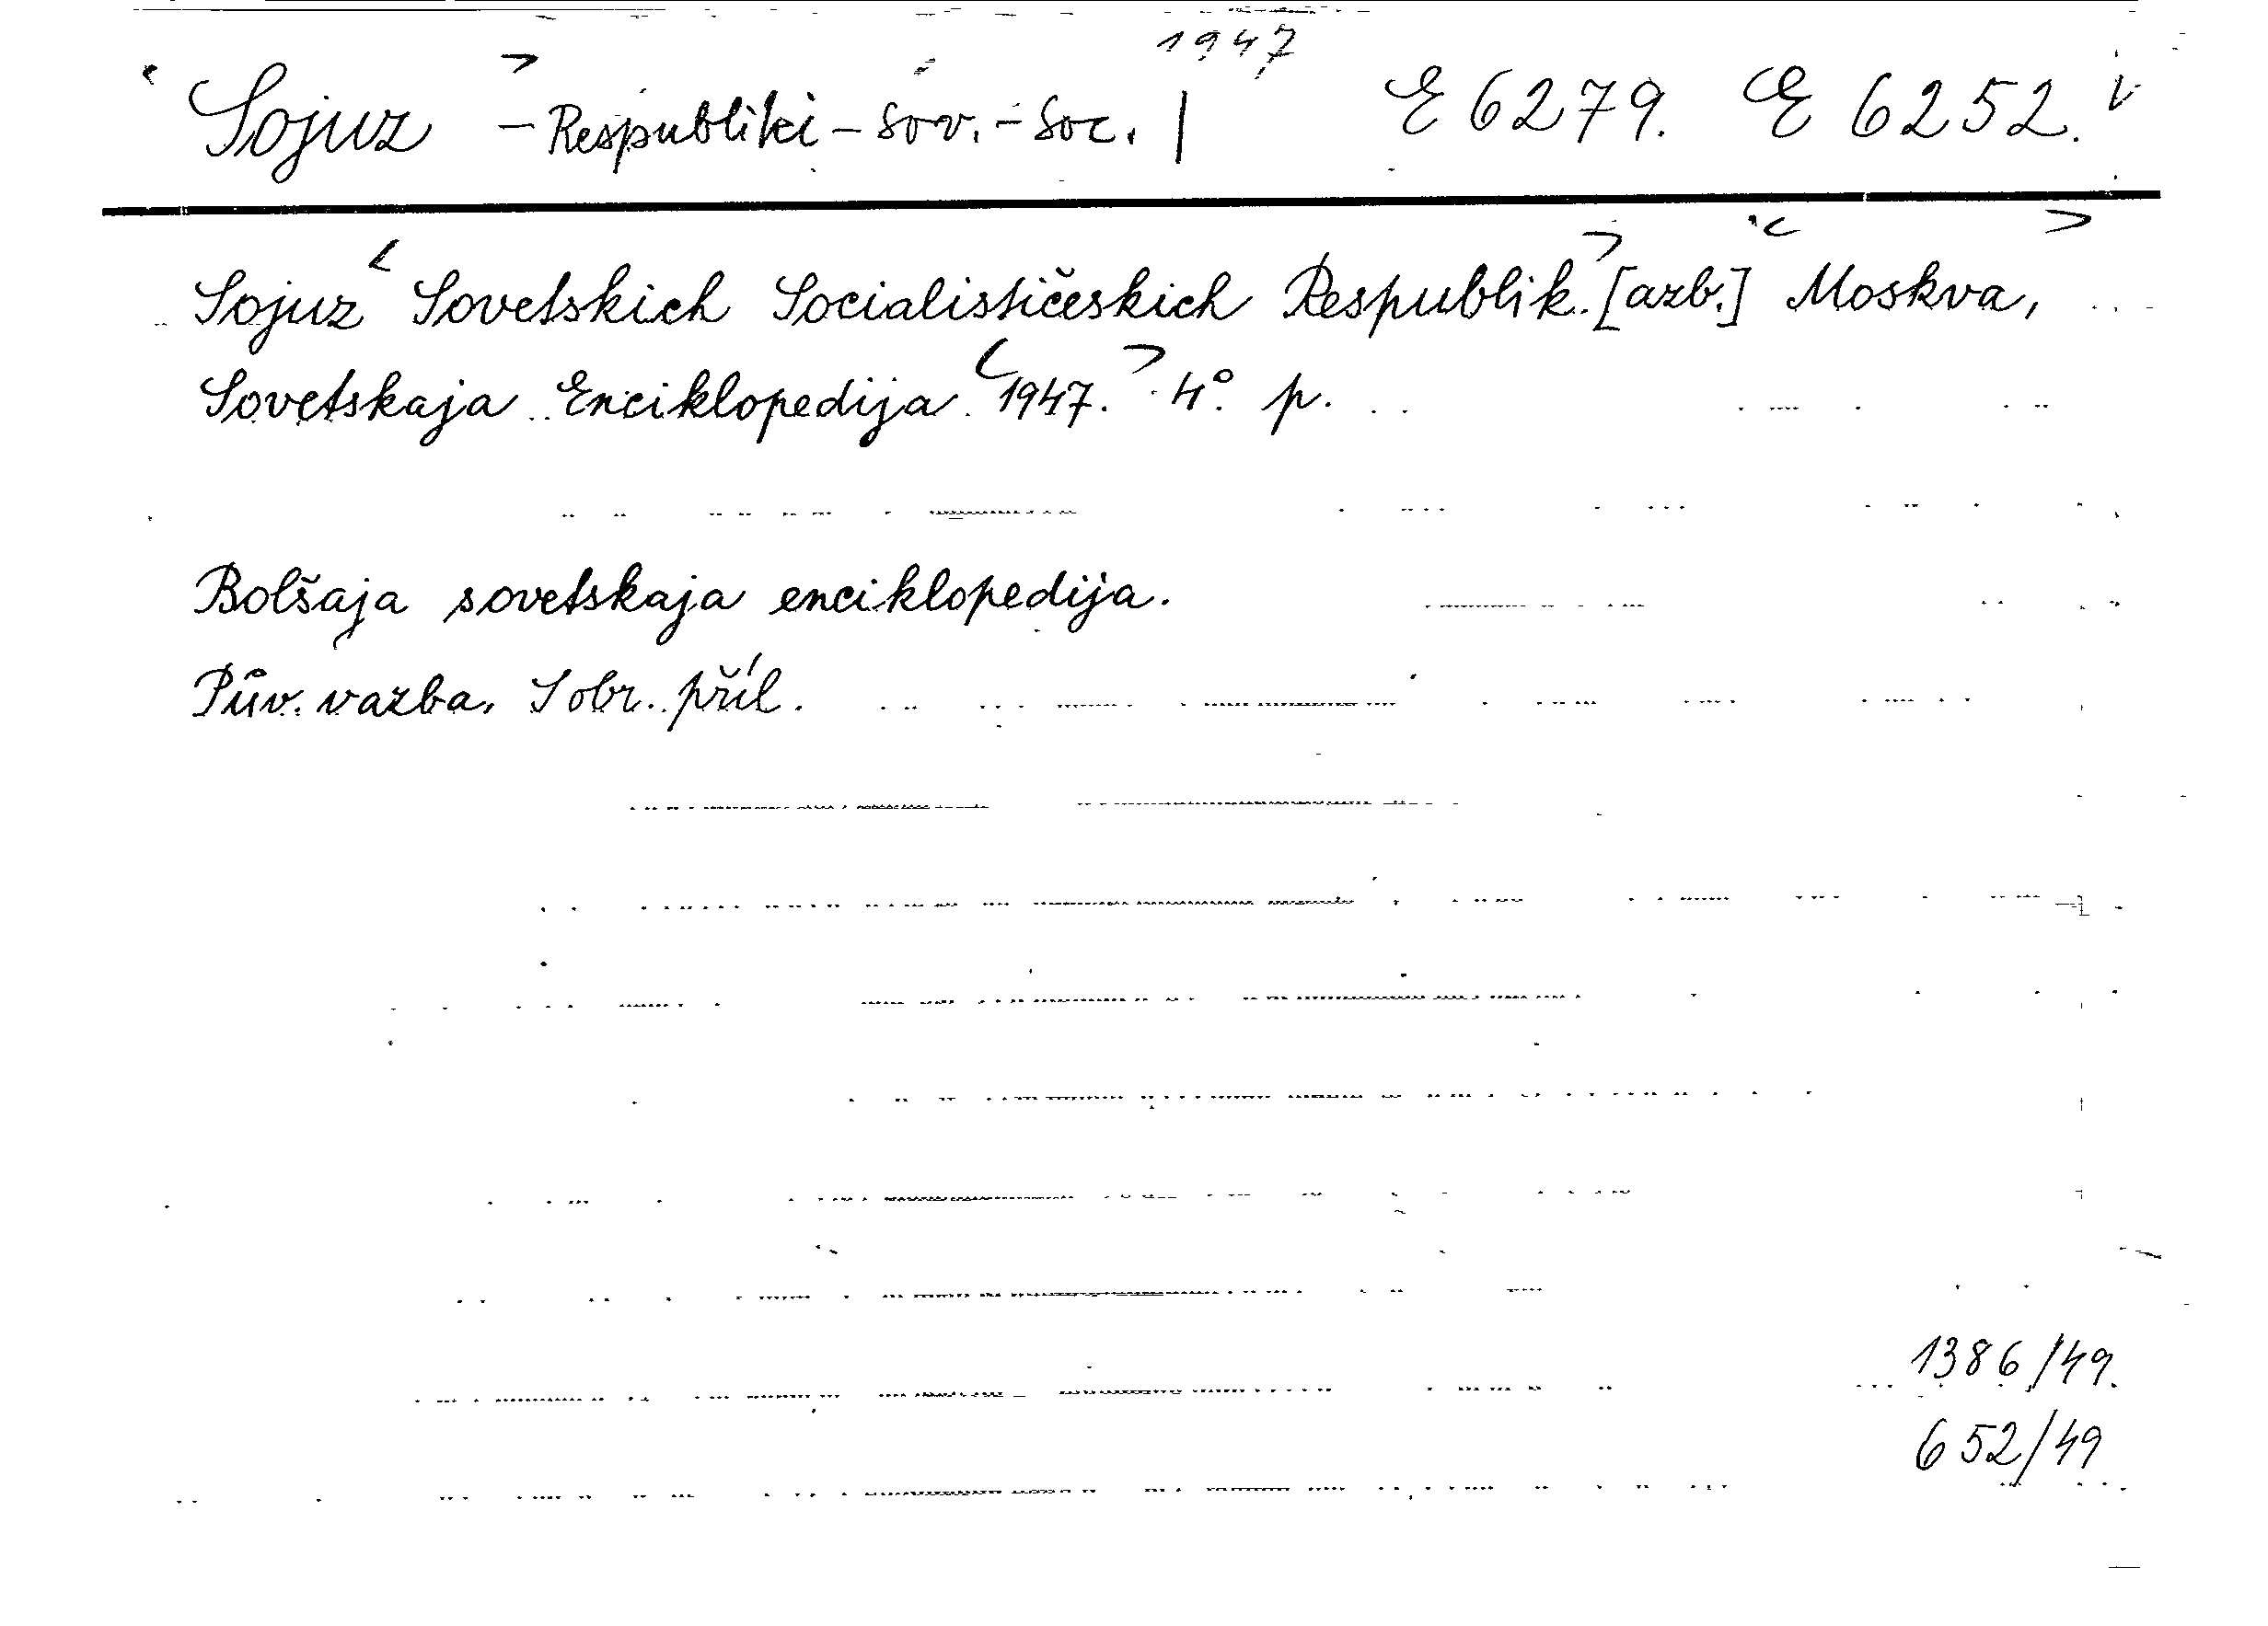 1947
Sojuz - Respubliki - sov. - soc. | E 6279. E 6252.
Sojuz Sovetskich Socialističeskich Respublik. [azb.] Moskva,
Sovetskaja Enciklopedija 1947. 4° p.
Bolšaja sovetskaja enciklopedija.
Pův. vazba. S obr. příl.
1386/49.
652/49